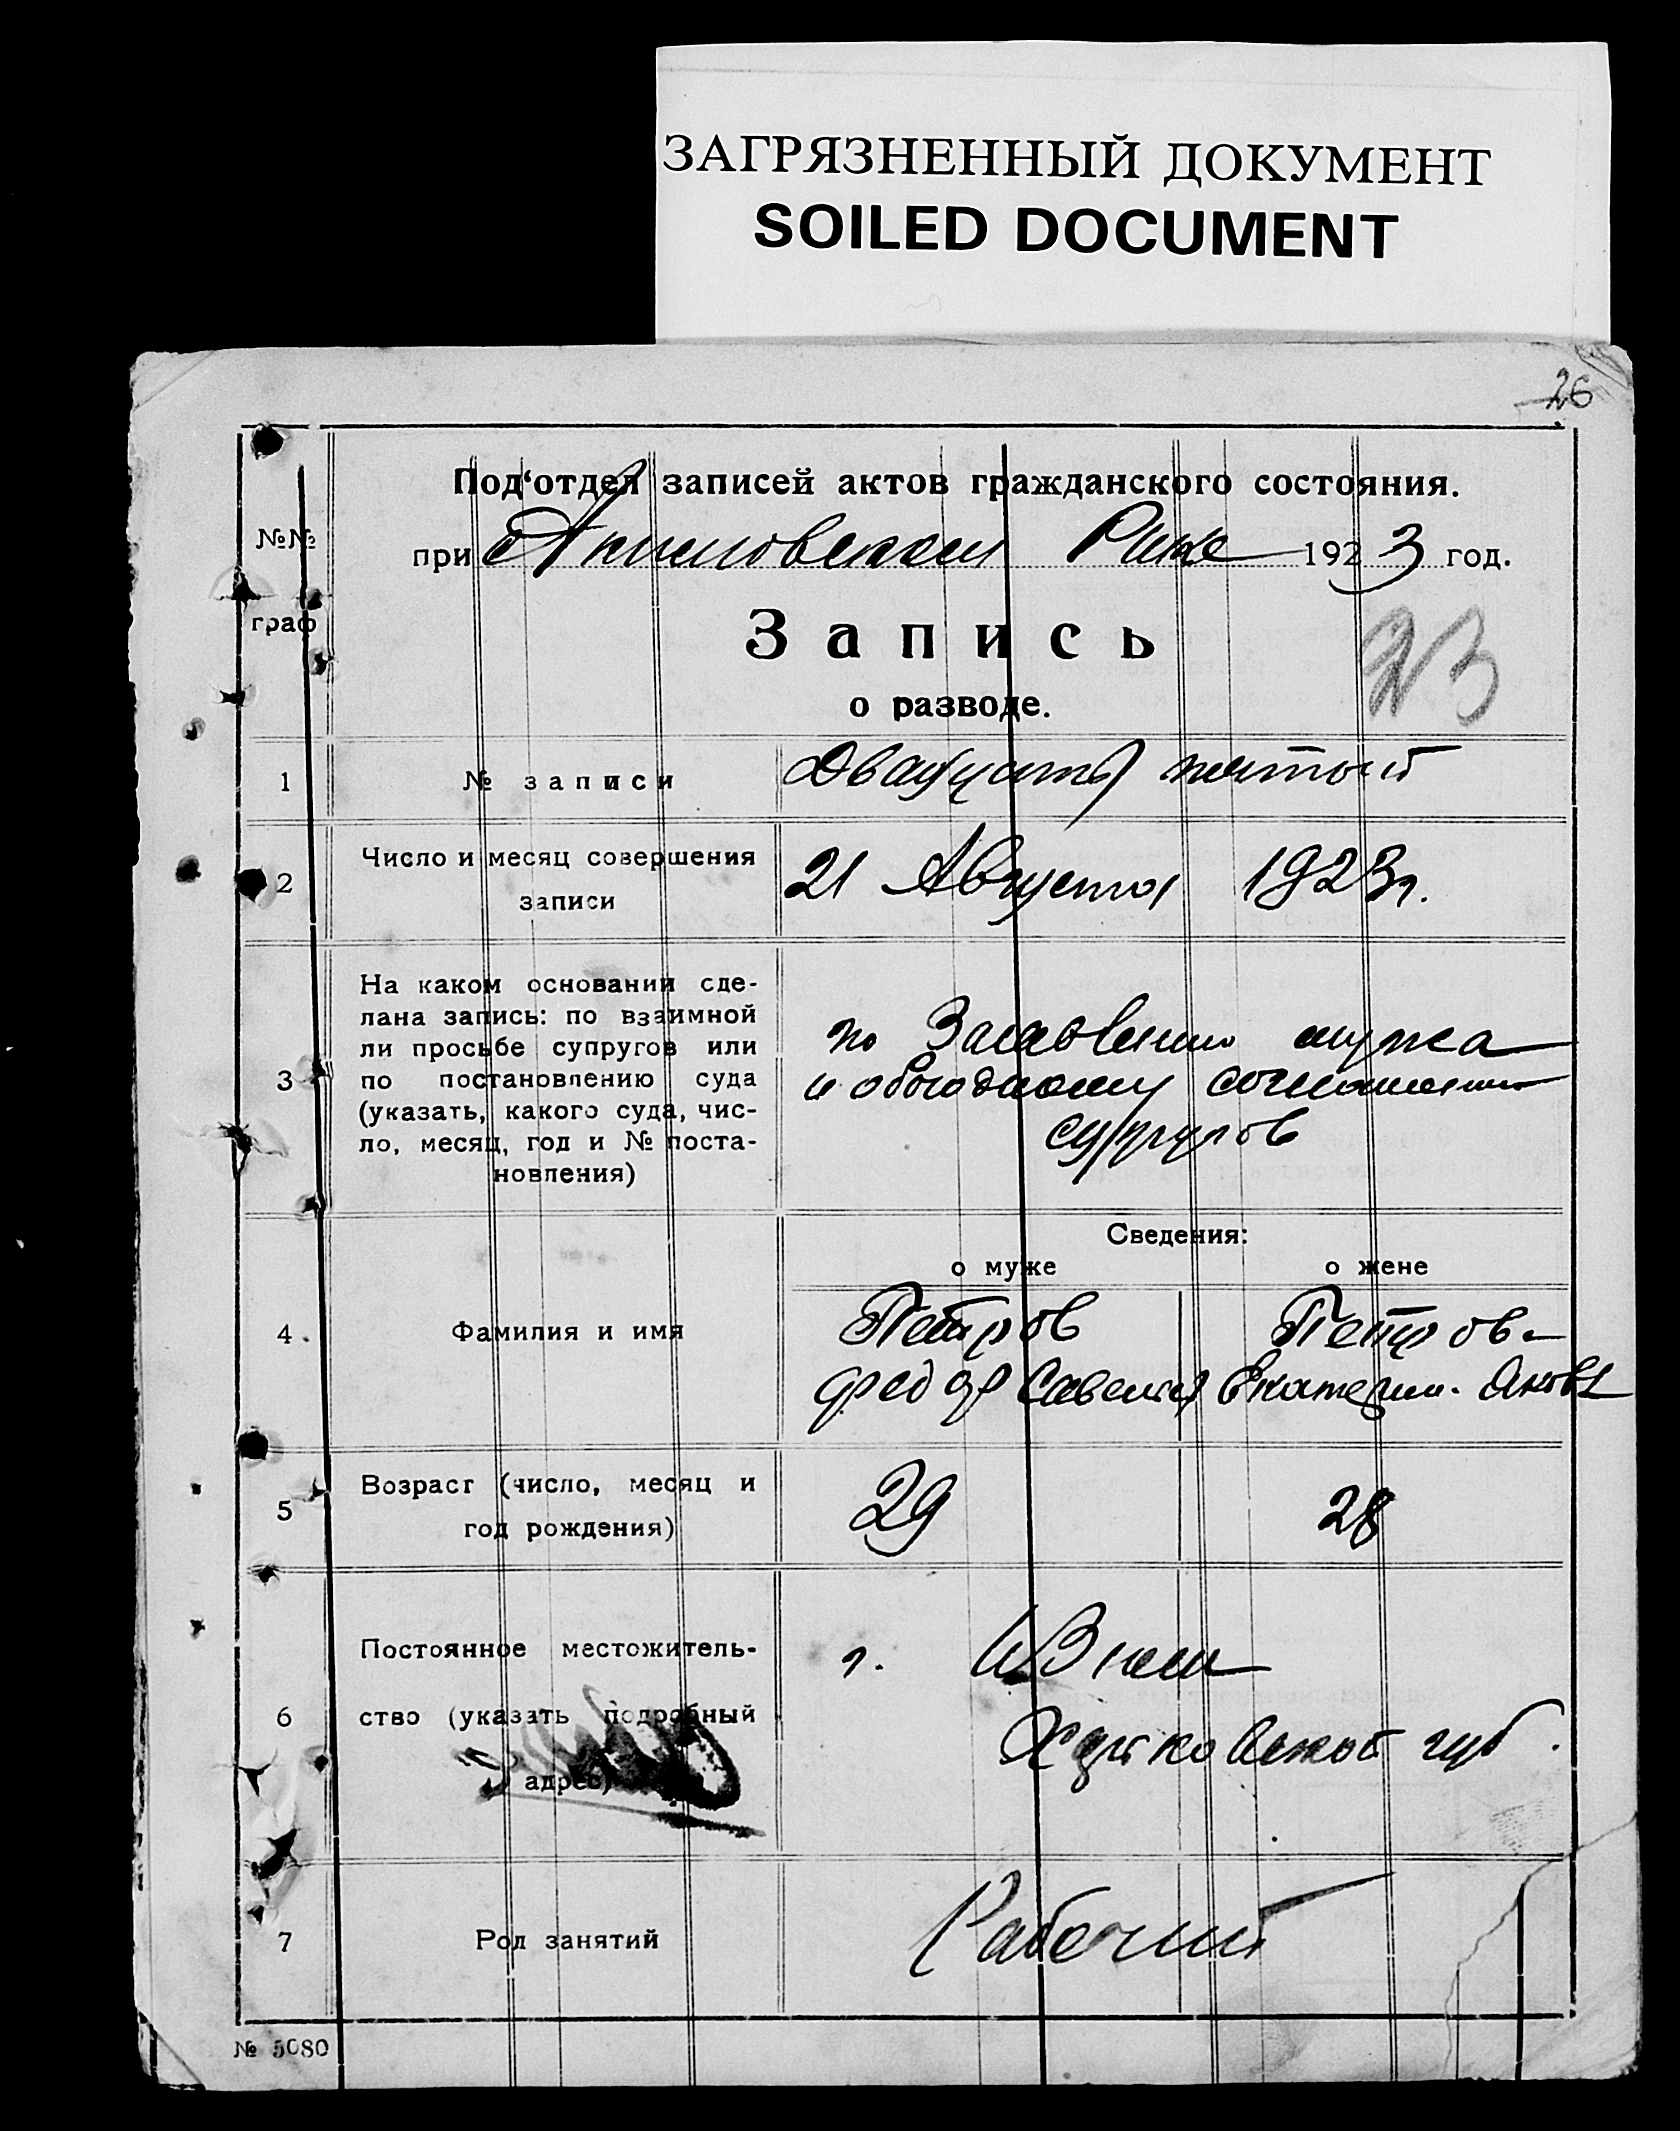 ЗАГРЯЗНЕННЫЙ ДОКУМЕНТ
SOILED DOCUMENT
26
Под'отдел записей актов гражданского состояния.
№№
при Акимовском Рике 1923 год.
граф
Запись
23
о разводе.
1 № записи Двадцать пятый
2 Число и месяц совершения 21 Августа 1923 г.
записи
На каком основании сде-
лана запись: по взаимной по Заявлению мужа
ли просьбе супругов или
3 по постановлению суда и обоюдному соглашению
(указать, какого суда, чис-
ло, месяц, год и № поста- супругов
новления)
Сведения:
о муже о жене
4. Фамилия и имя Петров Петров-
Федор Савельев Екатерин. Яковл
Возраст (число, месяц и
5 29 28
год рождения)
Постоянное местожитель- г. Изюм
6 ство (указать подробный
Харьковской губ.
адрес)
7 Род занятий Рабочий
№ 5080